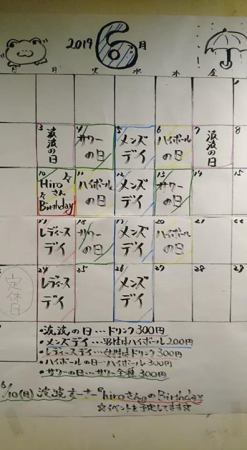 2019 6月
月 火 水 木 金
3 4 5 6 7 8
波波の日 サワーの日 メンズデイ ハイボールの日 波波の日
10 11 12 13 14
Hiroさん Birthday ハイボールの日 メンズデイ サワーの日
17 18 19 20 21
レディースデイ サワーの日 メンズデイ ハイボールの日
定休日
24 25 26 27 28
レディースデイ メンズデイ
•波波の日…ドリンク300円
•メンズデイ…男性はハイボール200円
•レディースデイ…女性はドリンク300円
•ハイボールの日…ハイボール300円
•サワーの日…サワー全種300円
6/10(月) hiroさんのBirthday